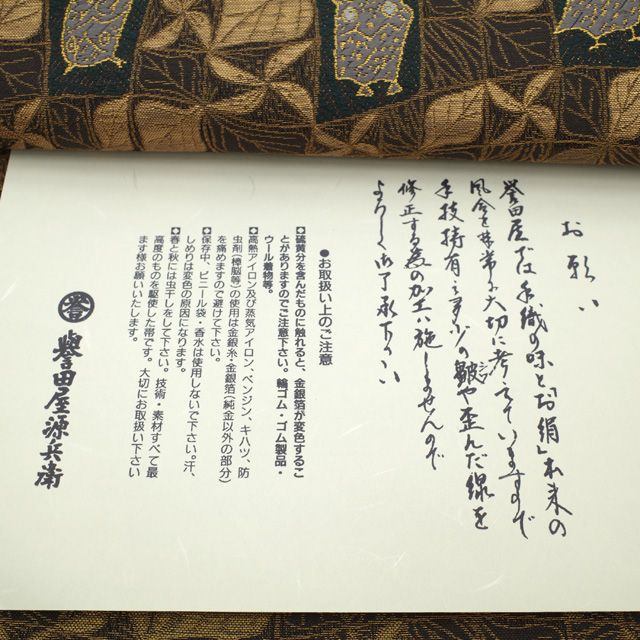 お願い
誉田屋では手織の味と「お絹」本来の
風合を非常に大切に考えていますので
手技持有
多少の皺や歪んだ線を
シワ
修正する為の加工は施しませんので
よろしく御了承下さい
●お取扱い上のご注意
◘硫黄分を含んだものに触れると、金銀箔が変色するこ
とがありますのでご注意下さい。輪ゴム・ゴム製品・
ウール着物等。
◘高熱アイロン及び蒸気アイロン、ベンジン、キハツ、防
虫剤（樟脳等）の使用は金銀糸・金銀箔（純金以外の部分）
を痛めますので避けて下さい。
◘保存中、ビニール袋・香水は使用しないで下さい。汗、
しめりは変色の原因になります。
◘春と秋には虫干しをして下さい。技術・素材すべて最
高度のものを駆使した帯です。大切にお取扱い下さい
ます様お願いいたします。
誉
誉田屋源兵衛